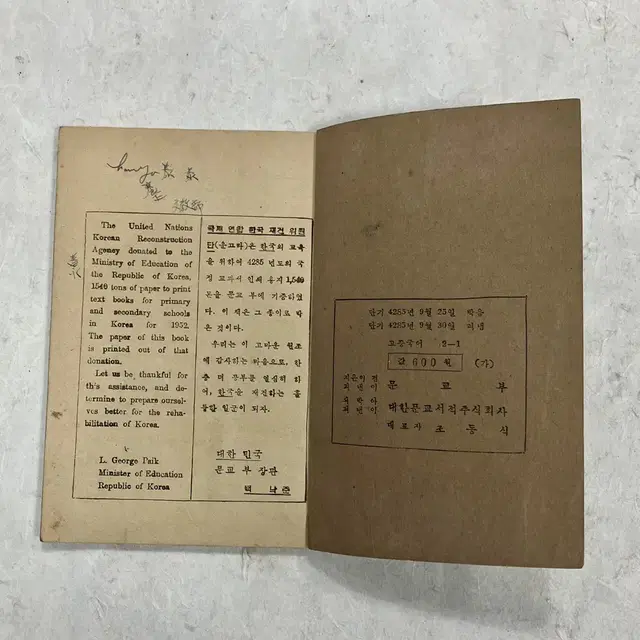 The United Nations
Korean Reconstruction
Agency donated to the
Ministry of Education of
the Republic of Korea,
1540 tons of paper to print
text books for primary
and secondary schools
in Korea for 1952.
The paper of this book
is printed out of that
donation.
Let us be thankful for
th's assistance, and de-
termine to prepare oursel-
ves better for the reha-
bilitation of Korea.
L. George Paik
Minister of Education
Republic of Korea
국제 연합 한국 재건 위원
단(운끄라)은 한국의 교육
을 위하여 4285 년도의 국
정 교과서 인쇄 용지 1,540
톤을 문교 부에 기증하였
다. 이 책은 그 종이로 박
은 것이다.
우리는 이 고마운 원조
에 감사하는 마음으로, 한
층 더 공부를 열심히 하
여, 한국을 재건하는 훌
륭한 일군이 되자.
대한 민국
문교 부 장관
백 낙준
단기 4285년 9월 25일 박음
단기 4285년 9월 30일 펴냄
고등국어 2-1
값 600 원 (가)
지은이 겸
펴낸이 문 교 부
대한문교서적주식회사
대표자 조 동 식